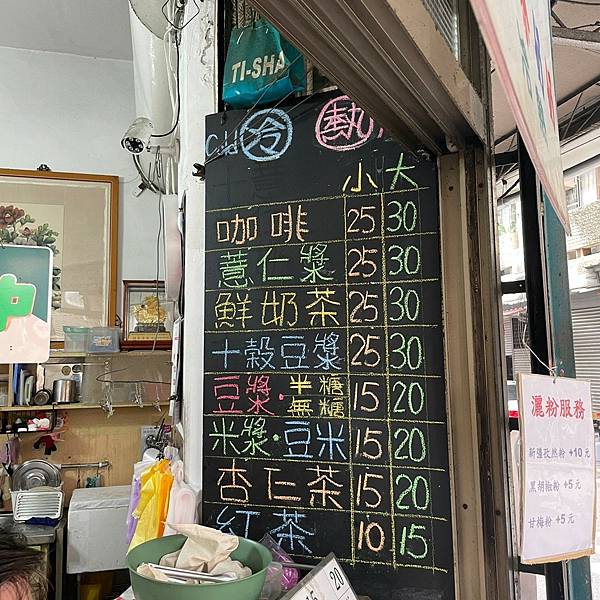 TI-SHA
冷 熱
小 大
咖啡 25 30
薏仁漿 25 30
鮮奶茶 25 30
十穀豆漿 25 30
豆漿・半糖 無糖 15 20
米漿・豆米 15 20
杏仁茶 15 20
紅茶 10 15
灑粉服務
新疆孜然粉 +10元
黑胡椒粉 +5元
甘梅粉 +5元
15 20